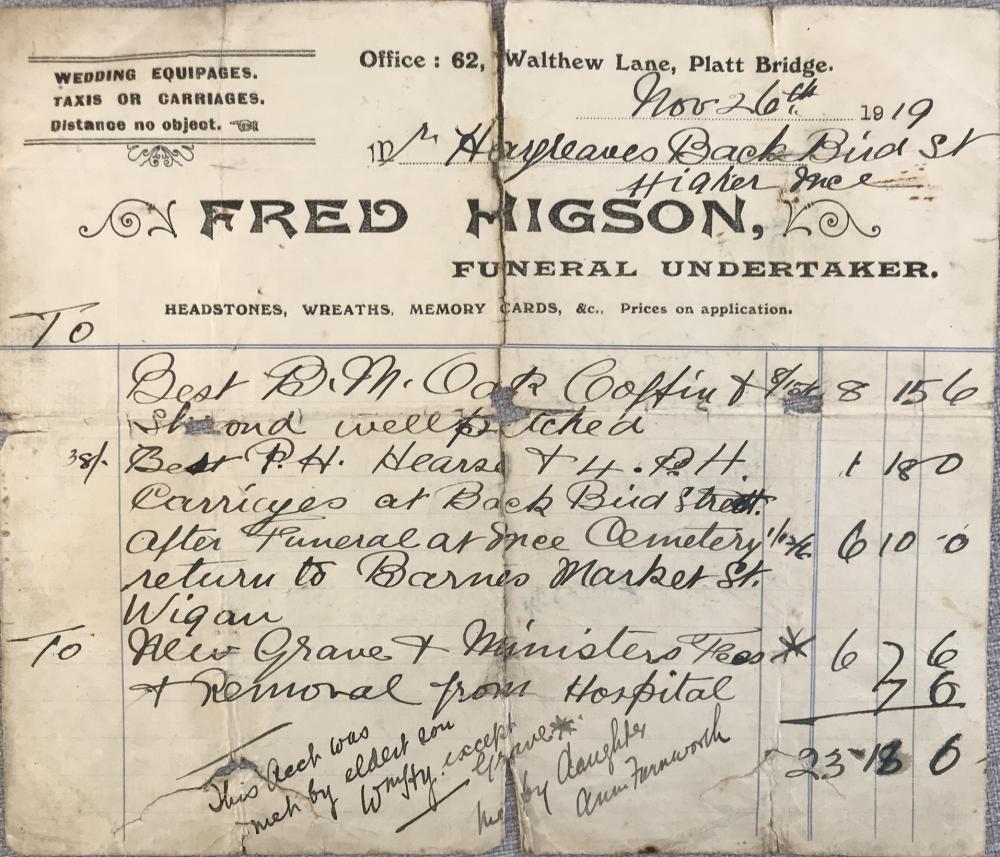 WEDDING EQUIPAGES.
TAXIS OR CARRIAGES.
Distance no object.
Office : 62, Walthew Lane, Platt Bridge.
Nov 26th 1919
Mr Hargreaves Back Bird St
Higher Ince
FRED HIGSON,
FUNERAL UNDERTAKER.
HEADSTONES, WREATHS, MEMORY CARDS, &c., Prices on application.
To
Best B.M. Oak Coffin & 8 15 6
Shroud well pitched
38/- Best P.H. Hearse & 4. P.H. 1 18 0
Carriages at Back Bird Street.
after Funeral at Ince Cemetery 6 10 0
return to Barnes Market St.
Wigan
To New Grave & Ministers Fees * 6 7 6
& Removal from Hospital 7 6
23 18 6
This acct was
met by eldest son
except
Grave *
met by daughter
Ann Farnworth